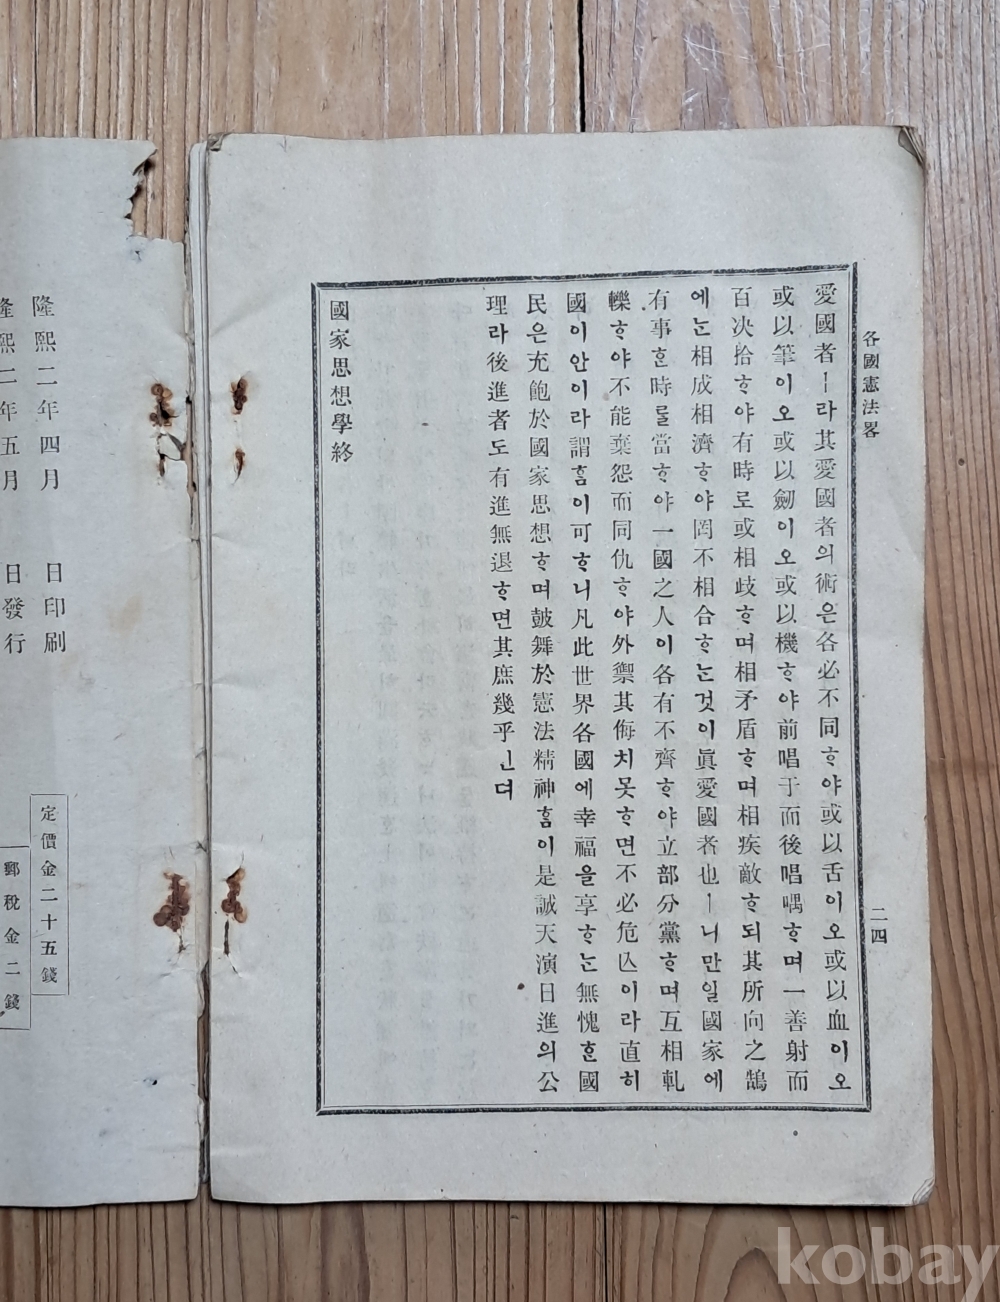 各國憲法畧
二四
愛國者ㅣ라其愛國者의術은各必不同ᄒᆞ야或以舌이오或以血이오
或以筆이오或以劒이오或以機ᄒᆞ야前唱于而後唱喁ᄒᆞ며一善射而
百决拾ᄒᆞ야有時로或相歧ᄒᆞ며相矛盾ᄒᆞ며相疾敵ᄒᆞ되其所向之鵠
에ᄂᆞᆫ相成相濟ᄒᆞ야罔不相合ᄒᆞᄂᆞᆫ것이眞愛國者也ㅣ니만일國家에
有事ᄒᆞᆫ時ᄅᆞᆯ當ᄒᆞ야一國之人이各有不齊ᄒᆞ야立部分黨ᄒᆞ며互相軋
轢ᄒᆞ야不能棄怨而同仇ᄒᆞ야外禦其侮치못ᄒᆞ면不必危亾이라直히
國이안이라謂ᄒᆞᆷ이可ᄒᆞ니凡此世界各國에幸福을享ᄒᆞᄂᆞᆫ無愧ᄒᆞᆫ國
民은充飽於國家思想ᄒᆞ며皷舞於憲法精神ᄒᆞᆷ이是誠天演日進의公
理라後進者도有進無退ᄒᆞ면其庶幾乎ᅟᅵᆫ뎌
國家思想學終
隆熙二年四月 日印刷
隆熙二年五月 日發行
定價金二十五錢
郵稅金二錢
kobay